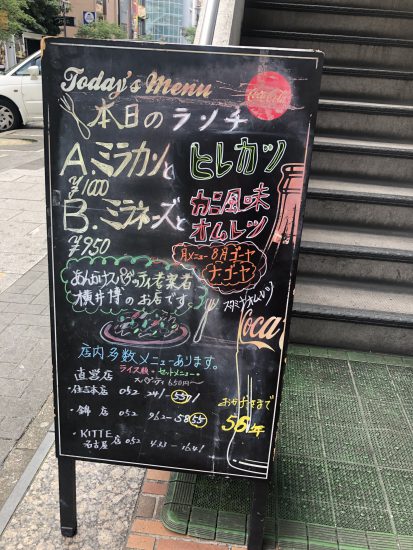 Today's Menu
Coca-Cola
本日のランチ
A.ミラカツと ヒレカツ
¥1000
B.ミラネーズと カニ風味オムレツ
¥950
月メニュー 8月ゴーヤ
ナゴーヤ
あんかけスパゲッティ考案者
横井博のお店です。
スタミナオムレツ
Coca
店内多数メニューあります。
ライス類・セットメニュー・
スパゲティ650円〜
直営店
・住吉本店 052 241-5571
・錦店 052 962-5855
・KITTE名古屋店 052
おかげさまで
56年